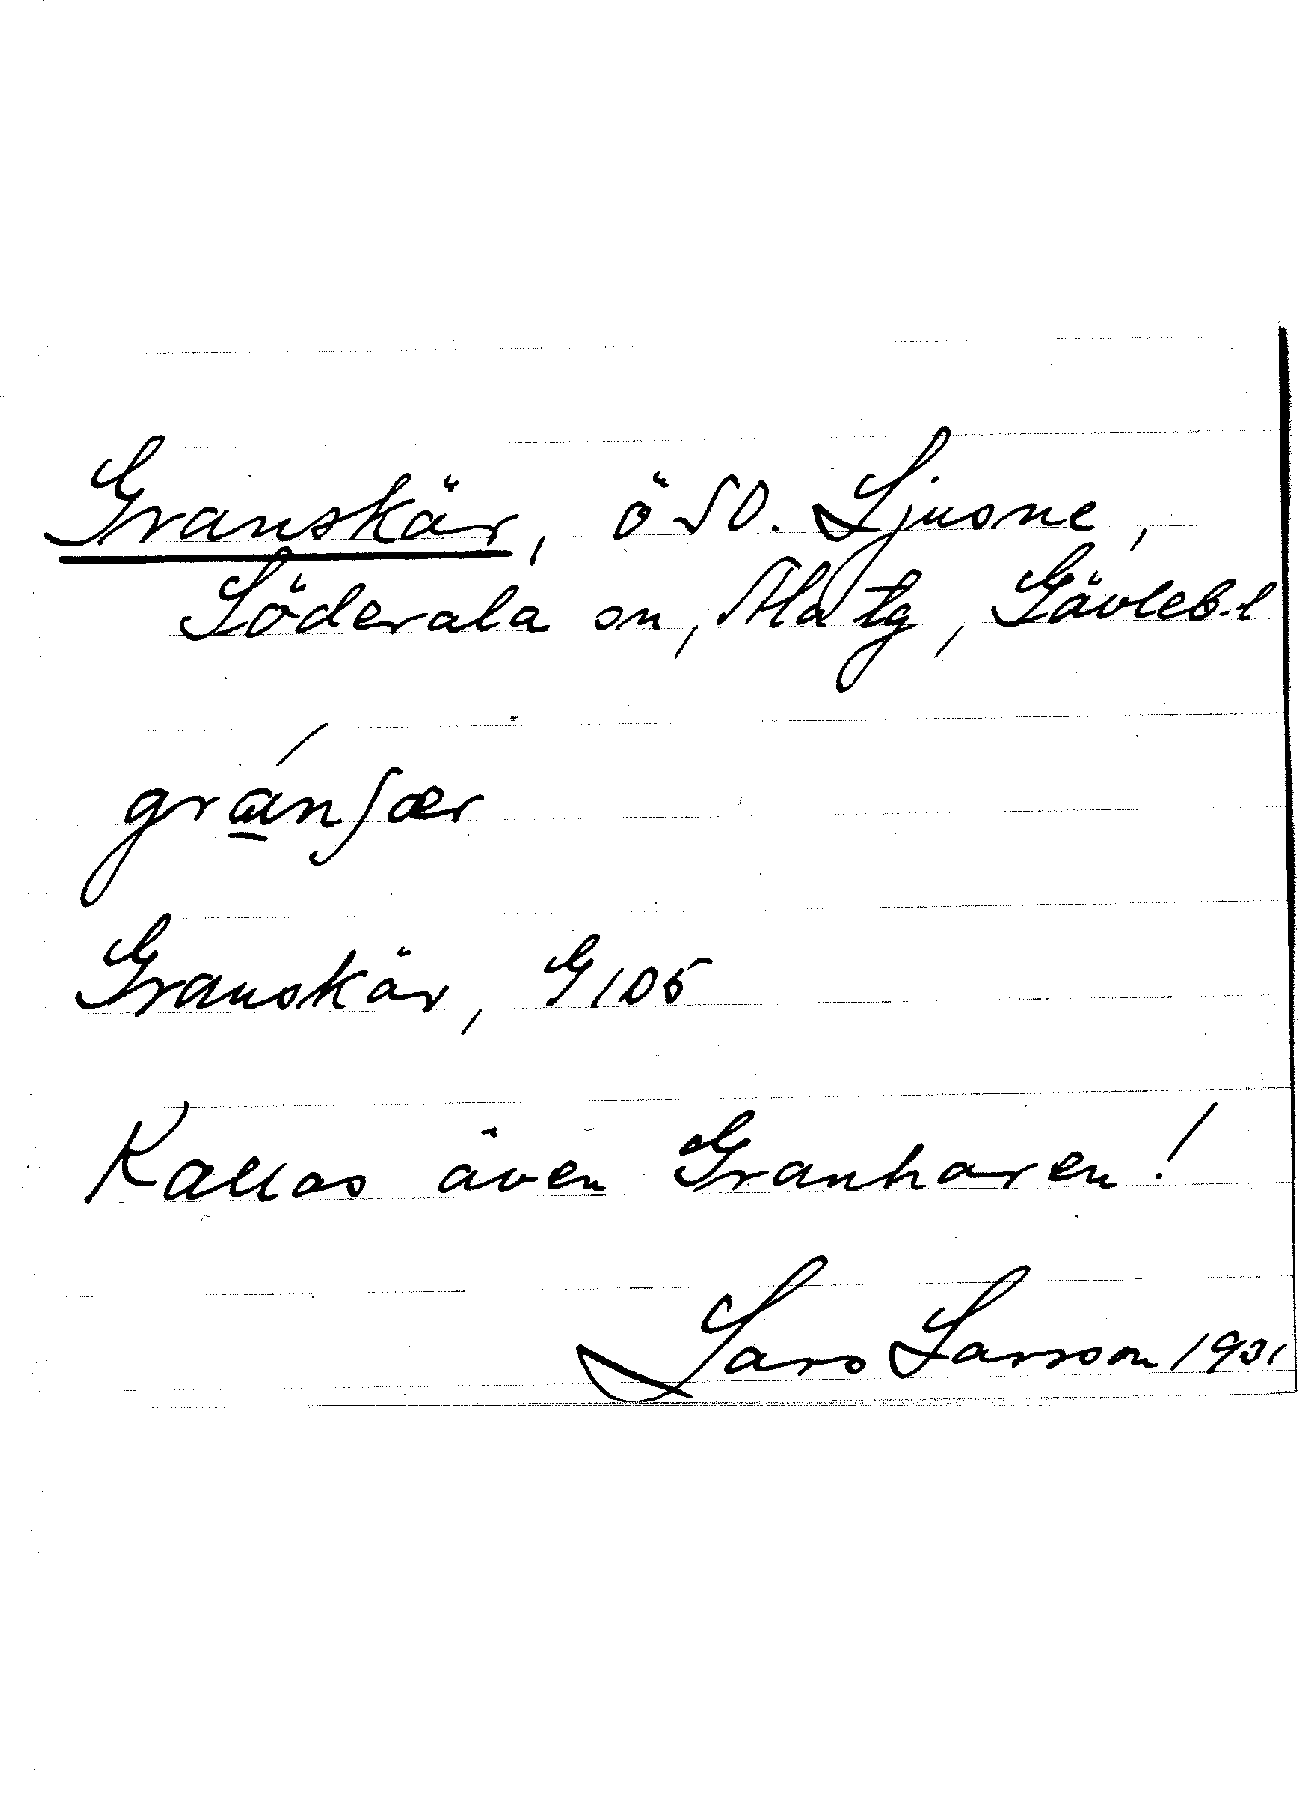 Granskär, ö SO. Ljusne,
Söderala sn, Ala tg, Gävleb. l
gránʃær
Granskär, G 105
Kallas även Granharen!
Lars Larsson 1931